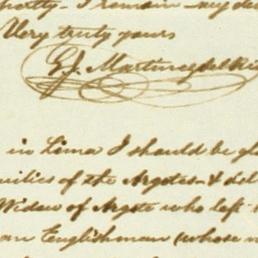 I remain - my dear
Very truly yours
G. J. Martinez del Rio
in Lima I should be
of the Argotes & del
Widow of Argote who left
an Englishman (whose